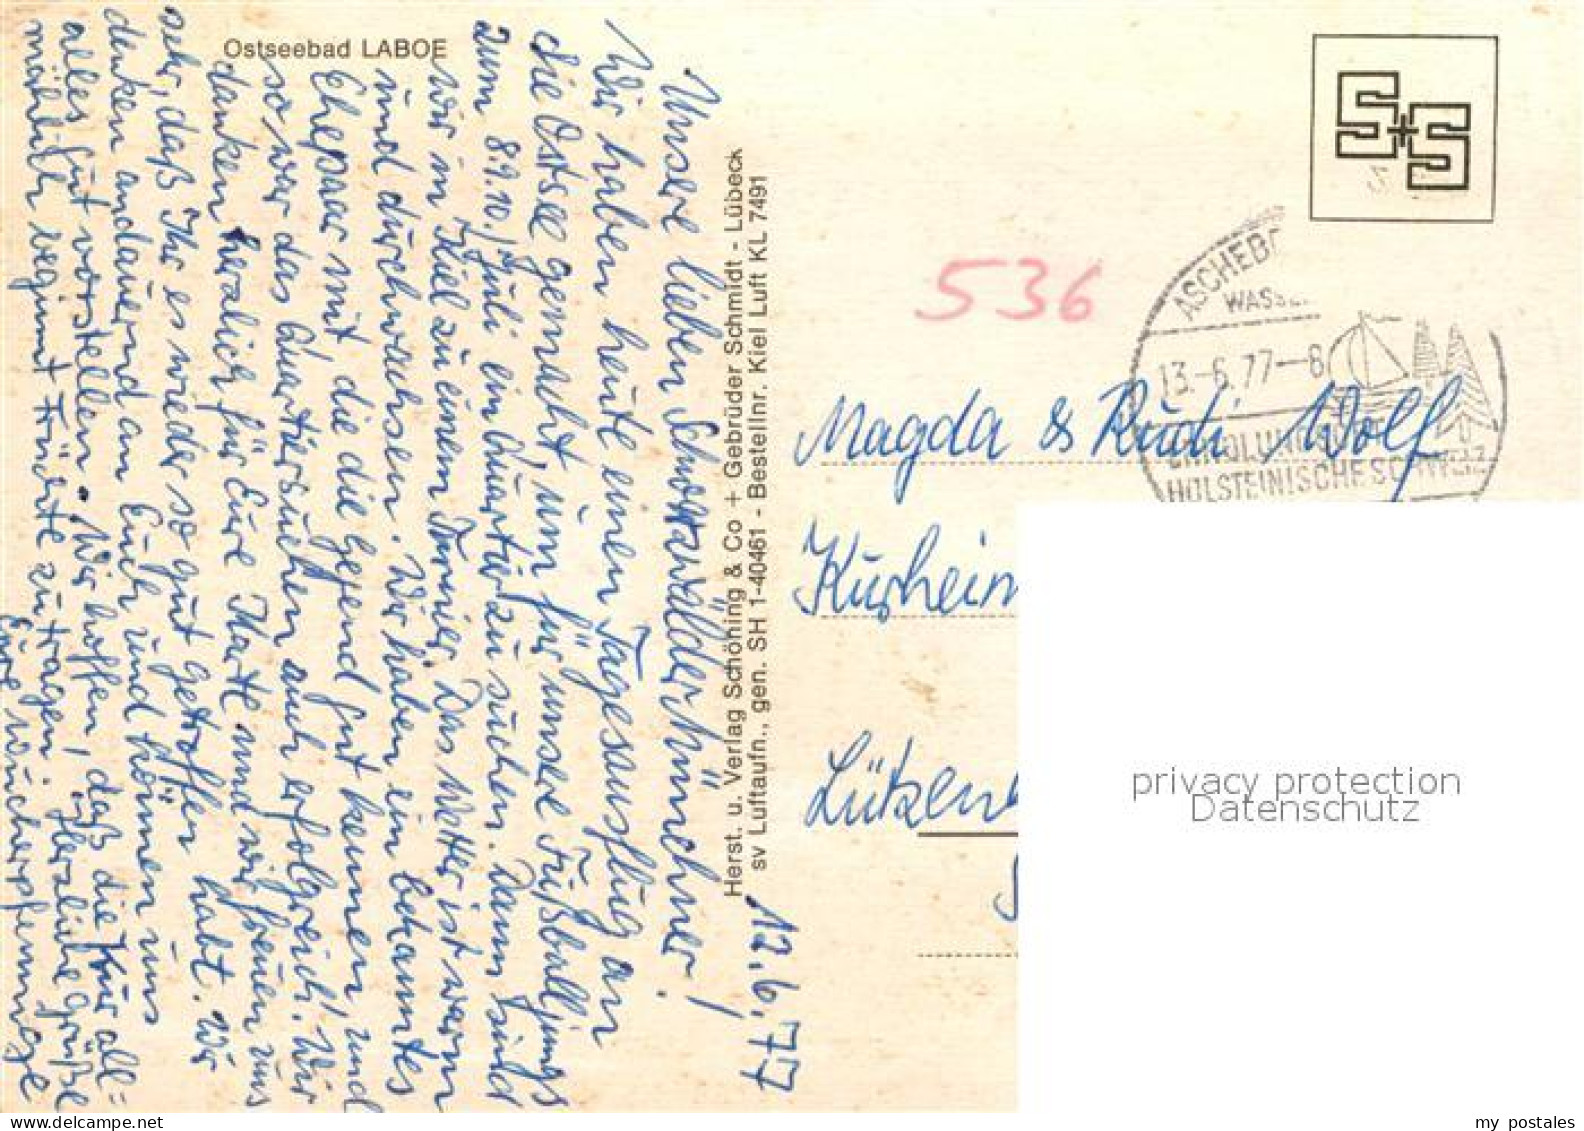 Ostseebad LABOE
12.6.77
Unsere lieben Schwarzwälder Münchner!
Wir haben heute einen Tagesausflug an
die Ostsee gemacht, um für unsere Fußballjungs
zum 8.9.10. Juli ein Quartier zu suchen. Dann sind
wir in Kiel zu einem Turnier. Das Wetter ist warm
und durchwachsen. Wir haben ein bekanntes
Ehepaar mit die die Gegend gut kennen und
so war das Quartiersuchen auch erfolgreich. Wir
danken herzlich für Eure Karte und wir freuen uns
sehr, daß Ihr es wieder so gut getroffen habt. Wir
denken andauernd an Euch und können uns
alles gut vorstellen. Wir hoffen, daß die Kur all=
mählich beginnt Früchte zu tragen. Herzliche Grüße
Eure
Herst. u. Verlag Schöning & Co + Gebrüder Schmidt - Lübeck
sv Luftaufn., gen. SH 1-40461 - Bestellnr. Kiel Luft KL 7491
S+S
536
ASCHEB
WASSE
13.-6.77-8
HOLSTEINISCHE SCHWEIZ
Magda & Rudi Wolf
Kurheim
Lützen
privacy protection
Datenschutz
my postales